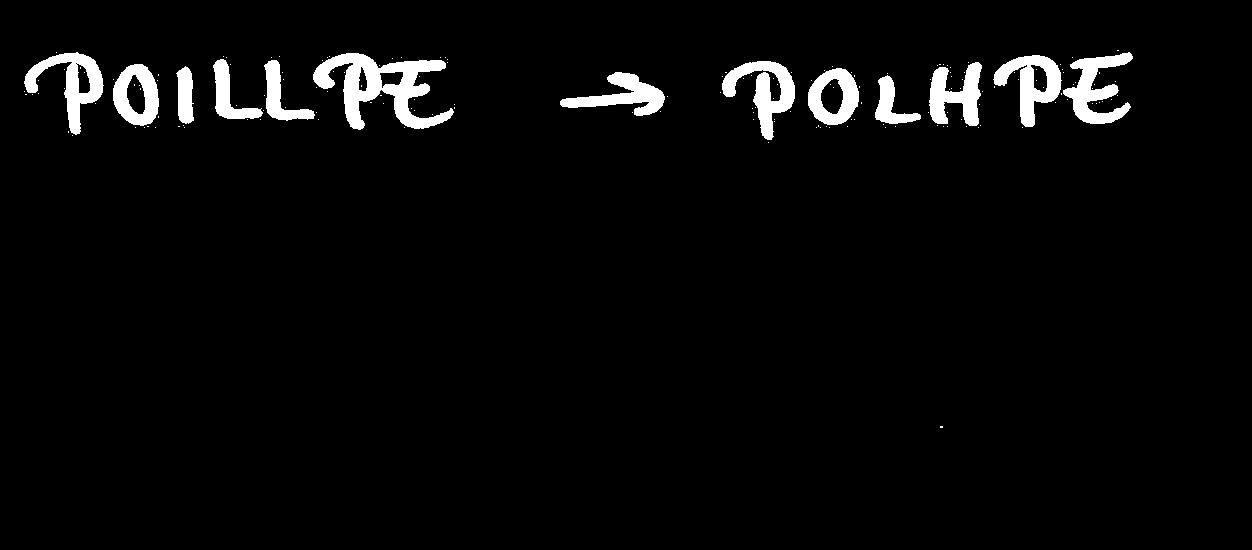 POILLPE → POLHPE